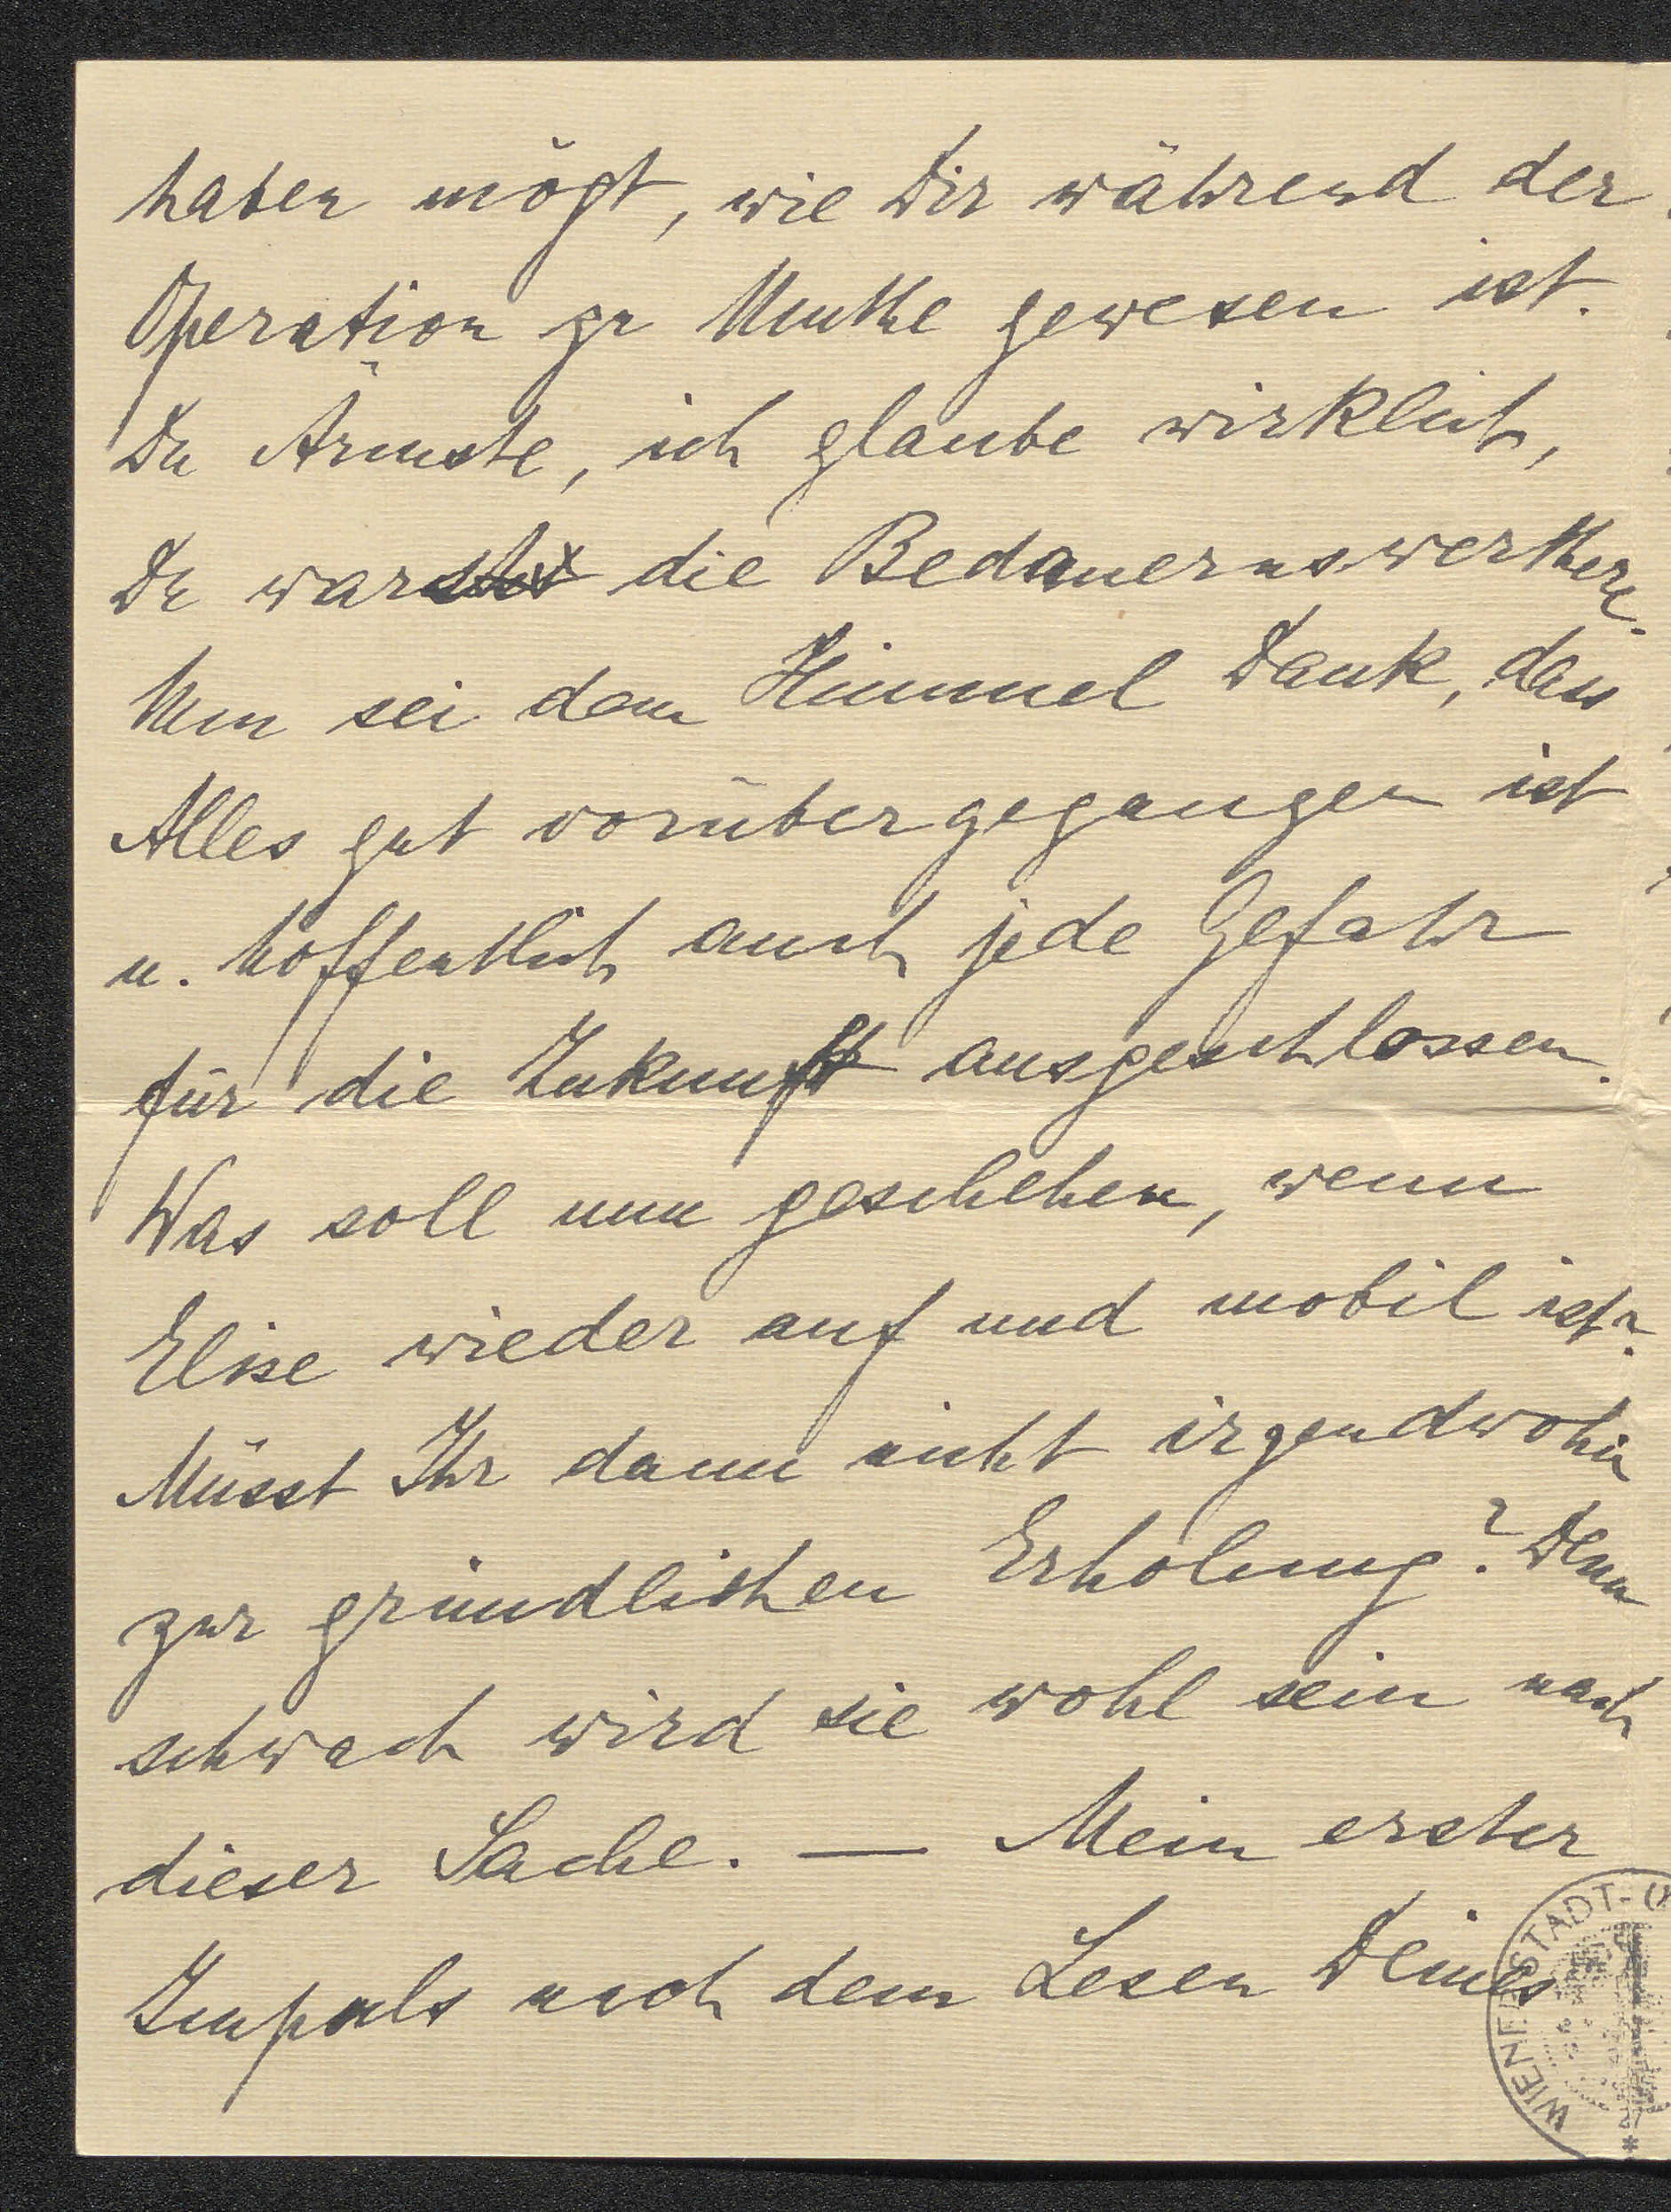 haben mögt, wie Dir während der
Operation zu Muthe gewesen ist.
Du Ärmste, ich glaube wirklich,
Du warst die Bedauernswerthere.
Nun sei dem Himmel Dank, dass
Alles gut vorübergegangen ist
u. hoffentlich auch jede Gefahr
für die Zukunft ausgeschlossen.
Was soll nun geschehen, wenn
Elise wieder auf und mobil ist?
Müsst Ihr dann nicht irgendwohin
zur gründlichen Erholung? Denn
schwach wird sie wohl sein nach
dieser Sache. — Mein erster
Impuls nach dem Lesen Deines
WIENER STADT-U